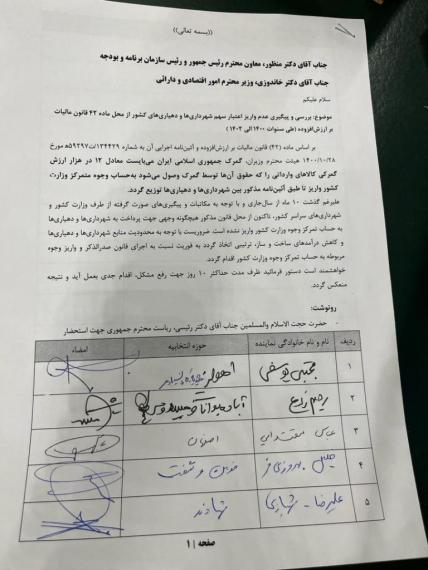 ((بسمه تعالی))
جناب آقای دکتر منظور، معاون محترم رئیس جمهور و رئیس سازمان برنامه و بودجه
جناب آقای دکتر خاندوزی، وزیر محترم امور اقتصادی و دارائی
سلام علیکم
موضوع: بررسی و پیگیری عدم واریز اعتبار سهم شهرداری‌ها و دهیاری‌های کشور از محل ماده ۴۳ قانون مالیات
بر ارزش‌افزوده (طی سنوات ۱۴۰۰ الی ۱۴۰۲)
بر اساس ماده (۴۳) قانون مالیات بر ارزش‌افزوده و آئین‌نامه اجرایی آن به شماره ۱۳۴۴۲۹/ت۵۹۲۹۷ه مورخ
۱۴۰۰/۱۰/۲۸ هیئت محترم وزیران، گمرک جمهوری اسلامی ایران می‌بایست معادل ۱۲ در هزار ارزش
گمرکی کالاهای وارداتی را که حقوق آن‌ها توسط گمرک وصول می‌شود به‌حساب وجوه متمرکز وزارت
کشور واریز تا طبق آئین‌نامه مذکور بین شهرداری‌ها و دهیاری‌ها توزیع گردد.
علیرغم گذشت ۱۰ ماه از سال‌جاری و با توجه به مکاتبات و پیگیری‌های صورت گرفته از طرف وزارت کشور و
شهرداری‌های سراسر کشور، تاکنون از محل قانون مذکور هیچگونه وجهی جهت پرداخت به شهرداری‌ها و دهیاری‌ها
به حساب تمرکز وجوه وزارت کشور واریز نشده است. ضروریست با توجه به محدودیت منابع شهرداری‌ها و دهیاری‌ها
و کاهش درآمدهای ساخت و ساز، ترتیبی اتخاذ گردد به فوریت نسبت به اجرای قانون صدرالذکر و واریز وجوه
مربوطه به حساب تمرکز وجوه وزارت کشور اقدام گردد.
خواهشمند است دستور فرمائید ظرف مدت حداکثر ۱۰ روز جهت رفع مشکل، اقدام جدی بعمل آید و نتیجه
منعکس گردد.
رونوشت:
- حضرت حجت الاسلام والمسلمین جناب آقای دکتر رئیسی، ریاست محترم جمهوری جهت استحضار
ردیف نام و نام خانوادگی نماینده حوزه انتخابیه امضاء
۱ مجتبی یوسفی اهواز
۲ رحیم زارع آباده
۳ عباس مقتدایی اصفهان
۴ فومن و شفت
۵ علیرضا شهبازی نهاوند
صفحه | ۱